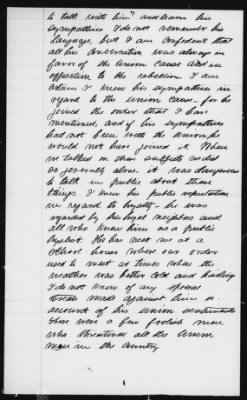 to talk with him and learn his
sympathies. I do not remember his
language, but I am confident that
all his conversation was always in
favor of the union cause and in
opposition to the rebelion. I am
certain I knew his sympathies in
regard to the union cause - for he
joined the order that I have
mentioned, and if his sympathies
had not been with the union, he
would not have joined it. When
we talked on these subjects we did
so generally alone. it was dangerous
to talk in public about these
things. I knew his public reputation
in regard to loyalty - he was
regarded by his loyal neighbors and
all who knew him as a public
loyalist. He has met me at a
school house where our order
used to meet at times when the
weather was better cold and
I do not know of any special
threats made against him on
account of his union sentiments
there were a few foolish men
who threatened all the union
men in the country